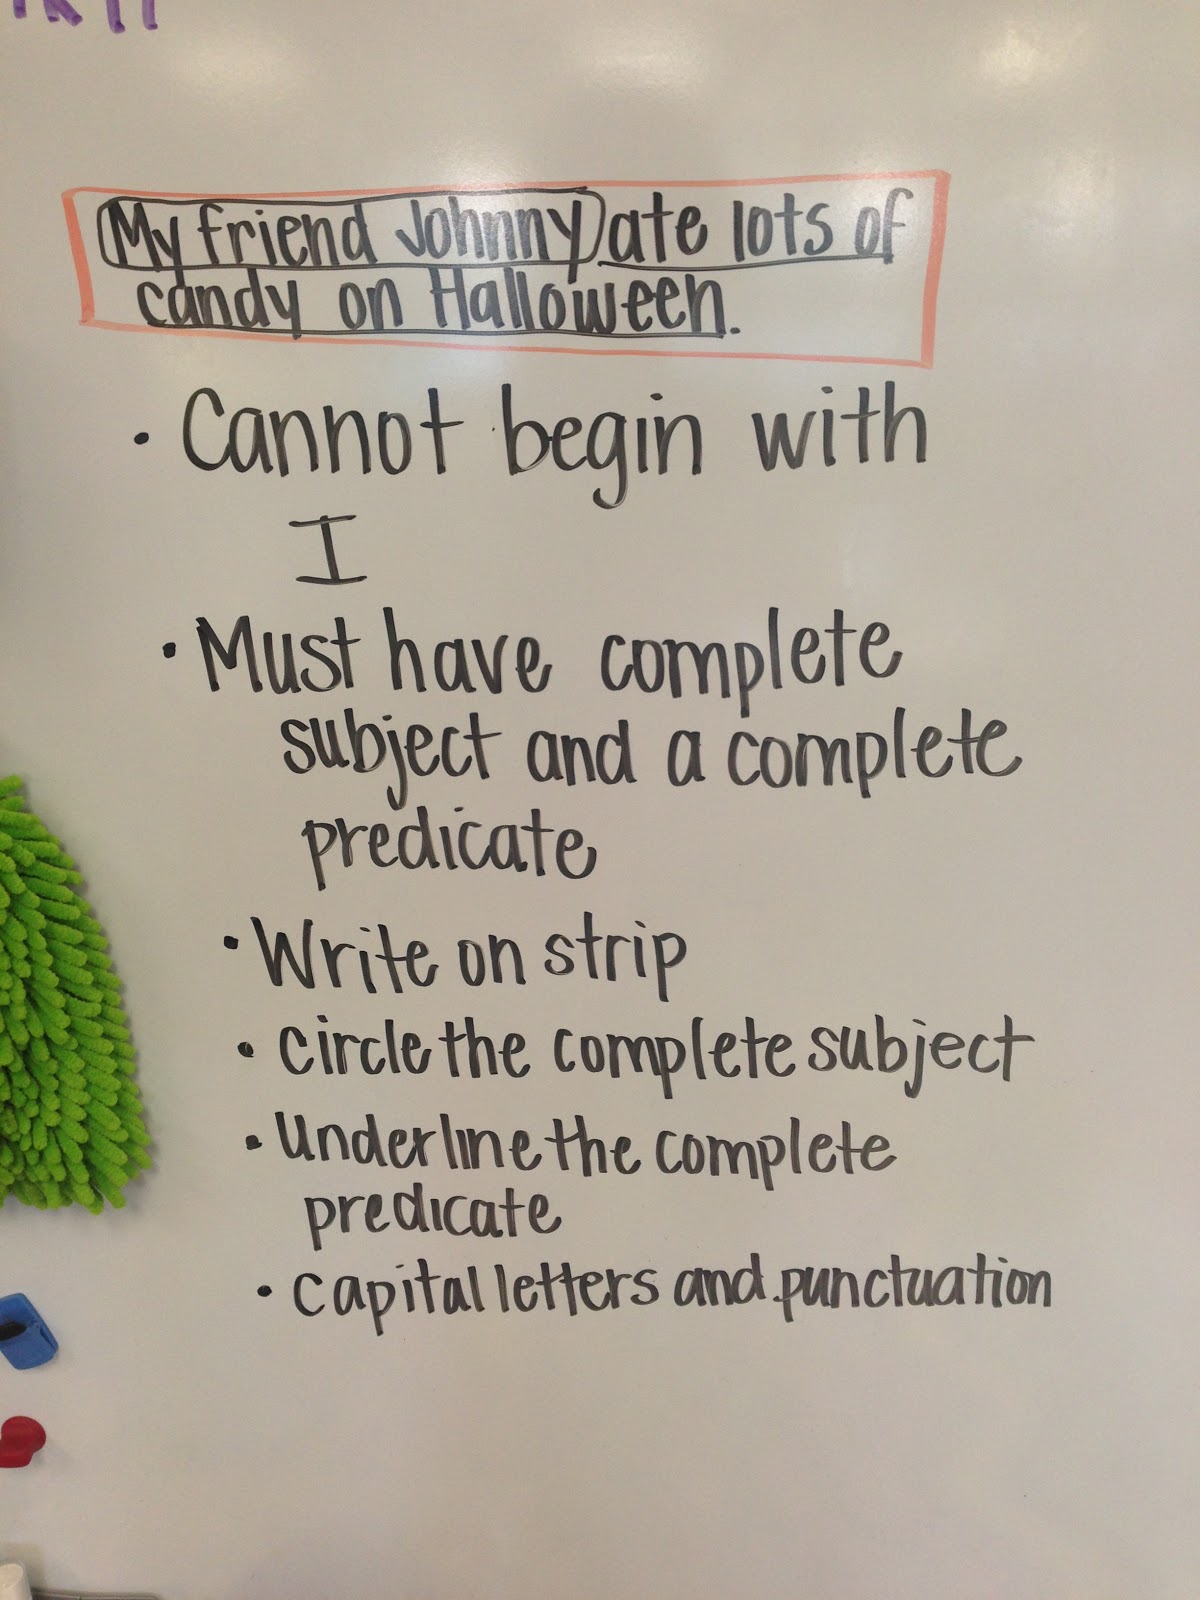 My friend Johnny ate lots of
candy on Halloween.
• Cannot begin with
I
• Must have complete
subject and a complete
predicate
• Write on strip
• circle the complete subject
• underline the complete
predicate
• capital letters and punctuation